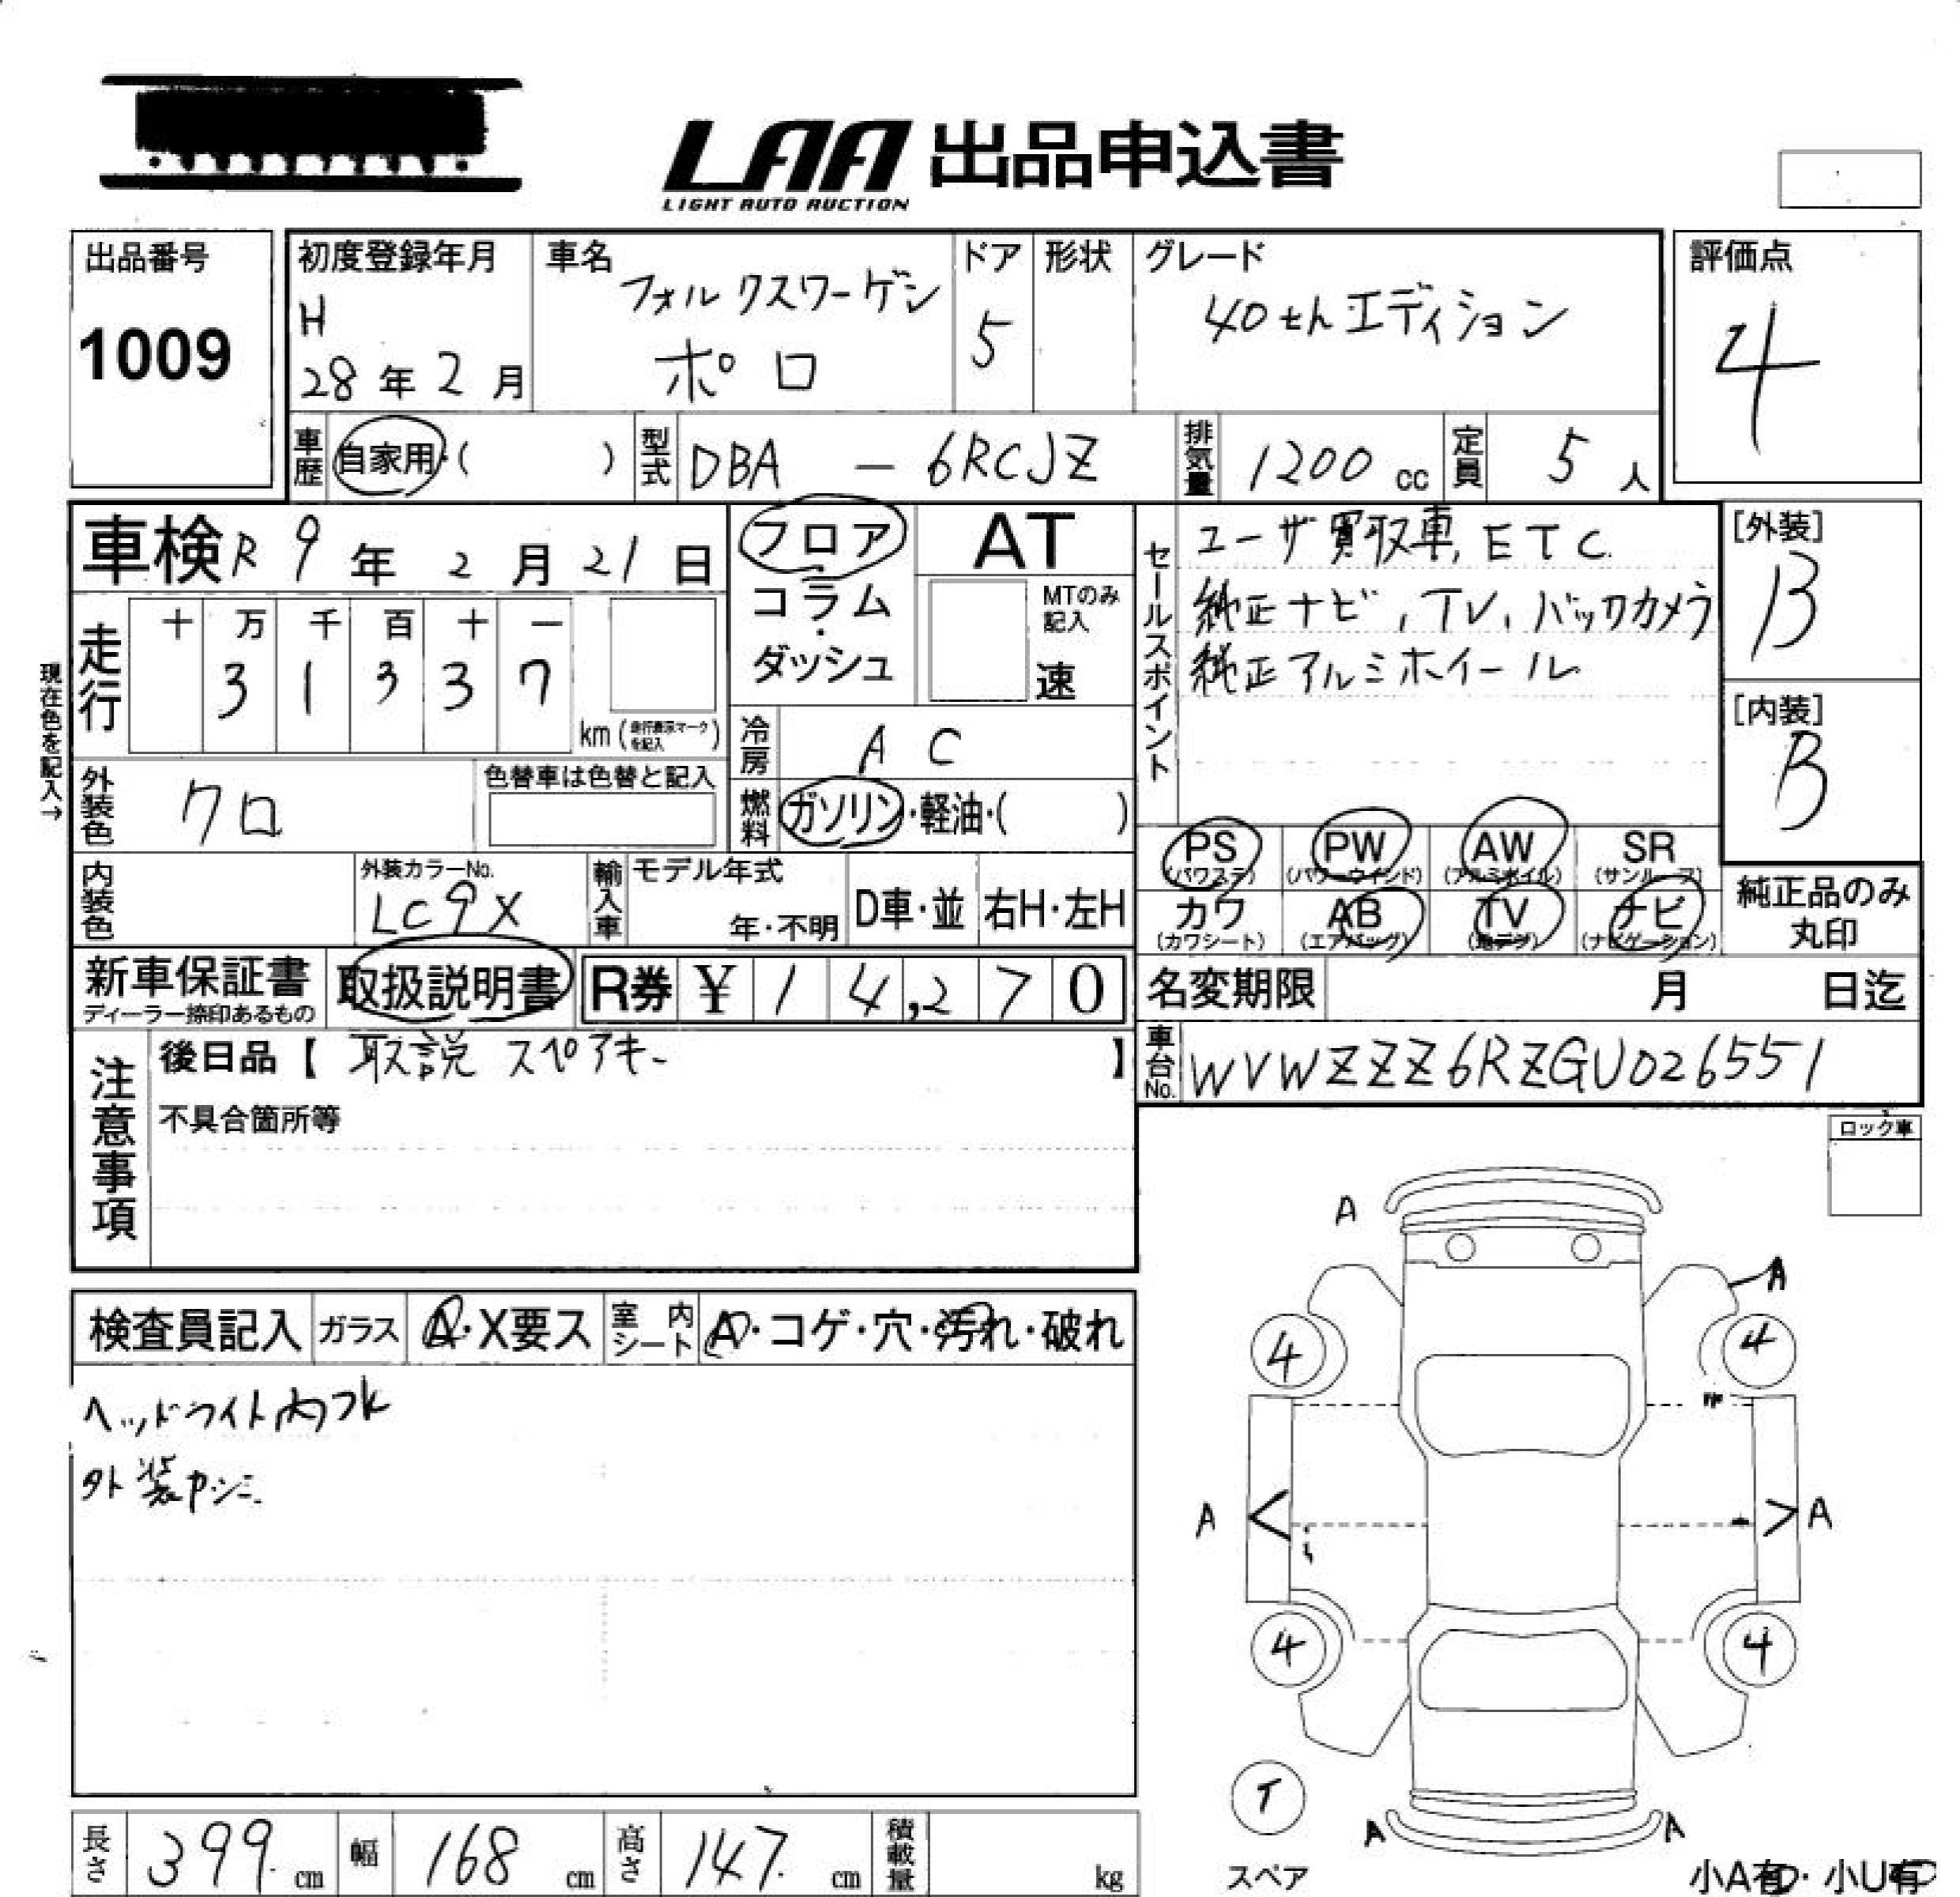 LAA 出品申込書
LIGHT AUTO AUCTION
出品番号
1009
初度登録年月
H
28年2月
車名
フォルクスワーゲン
ポロ
ドア
5
形状
グレード
40thエディション
評価点
4
車歴 自家用・( )
型式 DBA - 6RCJZ
排気量 1200 cc
定員 5 人
車検 R 9年 2月 21日
走行
十 万 千 百 十 一
3 1 3 3 7
km (走行表示マークを記入)
現在色を記入→
外装色 クロ
色替車は色替と記入
内装色
外装カラーNo.
LC9X
輸入車
モデル年式
年・不明
D車・並
右H・左H
フロア
コラム
・
ダッシュ
AT
MTのみ記入
速
冷房 AC
燃料 ガソリン・軽油・( )
セールスポイント
ユーザ買取車, ETC
純正ナビ, TV, バックカメラ
純正アルミホイール
[外装]
B
[内装]
B
PS (パワステ)
PW (パワーウインド)
AW (アルミホイル)
SR (サンルーフ)
カワ (カワシート)
AB (エアバッグ)
TV (地デジ)
ナビ (ナビゲーション)
純正品のみ
丸印
新車保証書
ディーラー捺印あるもの
取扱説明書
R券 ¥ 14,270
名変期限 月 日迄
車台No. WVWZZZ6RZGU026551
注意事項
後日品【 取説 スペアキー 】
不具合箇所等
ロック車
検査員記入
ガラス A・X要ス
室内シート A・コゲ・穴・汚れ・破れ
ヘッドライト内水
外装中シミ
A
A
4
4
A
A
4
4
T
スペア
A
A
小A有・小U有
長さ 399 cm
幅 168 cm
高さ 147 cm
積載量 kg